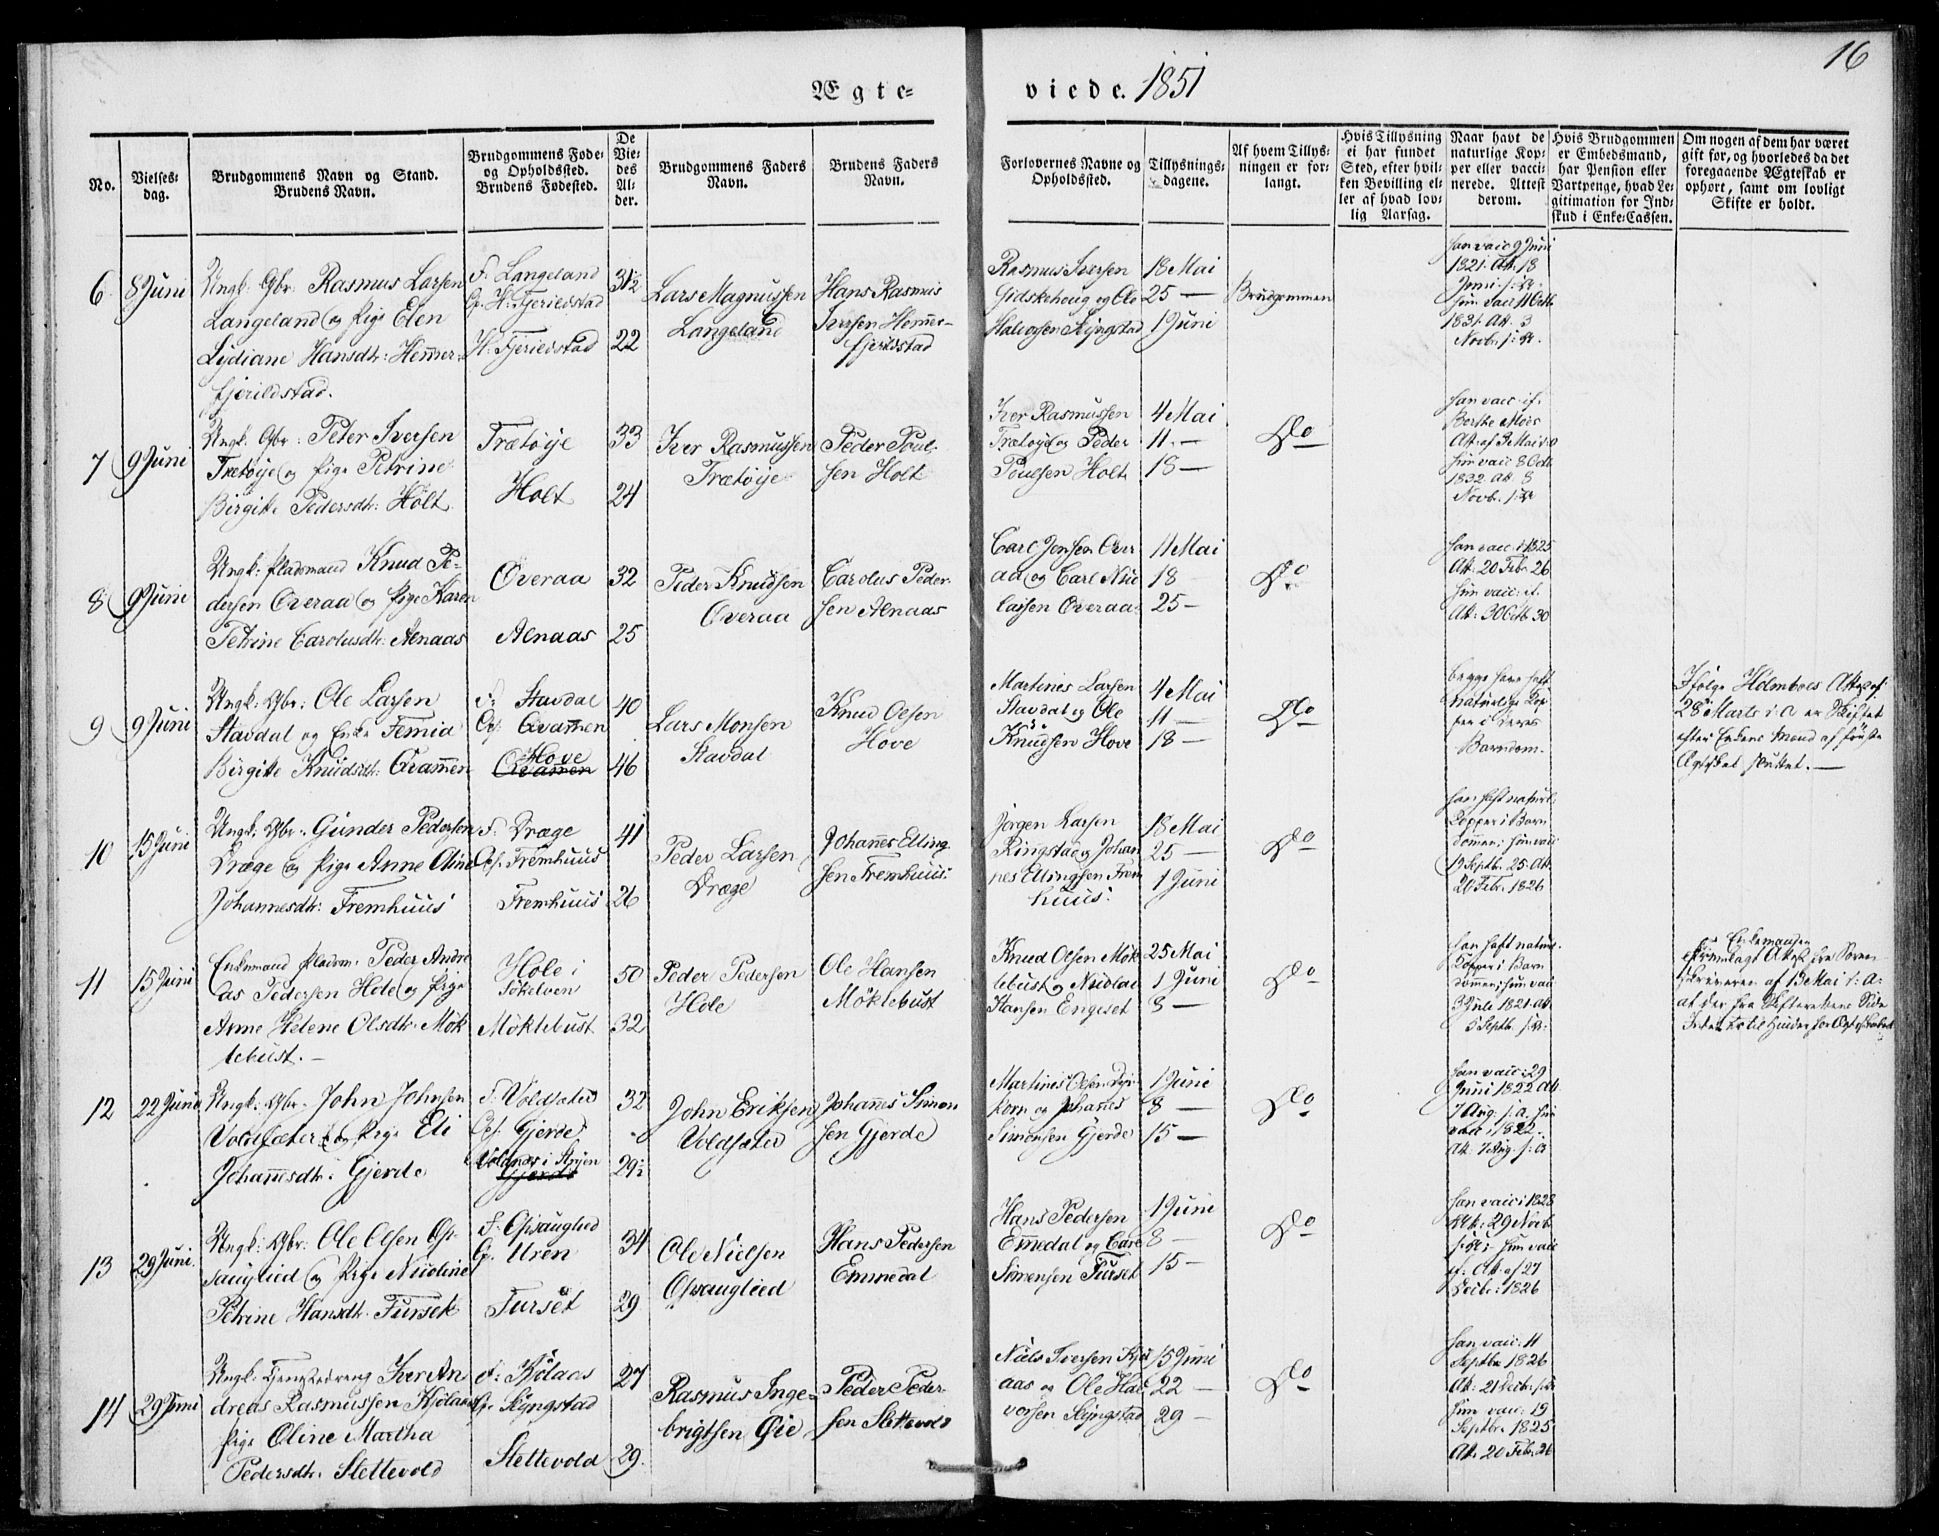 16
Ægte-
viede. 1851
No.
Vielses-
dag.
Brudgommens Navn og Stand.
Brudens Navn.
Brudgommens Føde-
og Opholdssted.
Brudens Fødested.
De
Vie-
des
Al-
der.
Brudgommens Faders
Navn.
Brudens Faders
Navn.
Forlovernes Navne og
Opholdssted.
Tillysnings-
dagene.
Af hvem Tillys-
ningen er for-
langt.
Hvis Tillysning
ei har fundet
Sted, efter hvil-
ken Bevilling el-
ler af hvad lov-
lig Aarsag.
Naar havt de
naturlige Kop-
per eller vacci-
nerede. Attest
derom.
Hvis Brudgommen
er Embedsmand,
har Pension eller
Vartpenge, hvad Le-
gitimation for Ind-
skud i Enke-Cassen.
Om nogen af dem har været
gift før, og hvorledes da det
foregaaende Ægteskab er
ophørt, samt om lovligt
Skifte er holdt.
6
8 Juni
Ungk: Gbr: Rasmus Larsen
Langeland og Pige Elen
Lydiane Hansdtr: Hemer-
fjerildstad.
F. Langeland
Op. H: Fjerildstad
H: Fjerildstad
31½
22
Lars Magnussen
Langeland
Hans Rasmus
Iversen Hemer-
fjerildstad
Rasmus Iversen
Gidskehoug og Ole
Halvorsen Slyngstad
18 Mai
25 —
1 Juni
Brudgommen
han vacc 9 Juni
1821. Att. 18
Juni s: A.
hun vacc 11 Octb
1831. Att. 3
Novbr. s: A.
7
9 Juni
Ungk: Gbr: Peter Iversen
Trætøye og Pige Petrine
Birgitte Pedersdtr: Holt
Trætøye
Holt
33
24
Iver Rasmussen
Trætøye
Peder Poul-
sen Holt
Iver Rasmussen
Trætøye og Peder
Poulsen Holt
4 Mai
11. —
18 —
Do
han vacc. if.
Att. af 3 Mai
hun vacc 8 Octb
1832. Att. 8
Novb. s: A
8
9 Juni
Ungk: Pladsmand Knud Pe-
dersen Overaa og Pige Karen
Petrine Carolusdtr: Alnaas
Overaa
Alnaas
32
25
Peder Knudsen
Overaa
Carolus Peder-
sen Alnaas
Carl Jensen Over
aa og Carl Nico
laisen Overaa
11 Mai
18 —
25 —
Do
han vacc: i 1825
Att: 20 Febr. 26
hun vacc: if.
Att: 30 Octb 30
9
9 Juni
Ungk: Gbr: Ole Larsen
Stavdal og Enke Femia
Birgitte Knudsdtr: Qvamen
F. Stavdal
Op: Qvamen
Hove
Qvamen
40
46
Lars Monsen
Stavdal
Knud Olsen
Hove
Martines Larsen
Stavdal og Ole
Knudsen Hove
4 Mai
11 —
18 —
Do
begge have haft
naturlige Kop-
per i deres
Barndom.
Ifølge Holmboes Attest af
28de Marts i: A er Skiftet
efter Enkens Mand af første
Ægteskab sluttet. —
10
15 Juni
Ungk: Gbr: Gunder Pedersen
Dræge og Pige Anne Oline
Johannesdtr: Fremhuus
F. Dræge
Op. Fremhuus
Fremhuus
41
26
Peder Larsen
Dræge
Johannes Elling-
sen Fremhuus.
Jørgen Larsen
Ringstad og Johan
nes Ellingsen Frem
huus.
18 Mai
25 —
1 Juni
Do
han haft naturl.
Kopper i Barn
dommen; hun vacc
19 Septbr. 25. Att.
20 Febr. 1826
11
15 Juni
Enkemand Pladsm. Peder Andre
as Pedersen Hole og Pige
Anne Helene Olsdtr: Møk
lebust. —
Hole i
Søkelven
Møklebust
50
32
Peder Pedersen
Hole
Ole Hansen
Møklebust
Knud Olsen Møk
lebust og Nicolai
Hansen Engeset
25 Mai
1 Juni
8 —
Do
han haft naturl.
Kopper i Barn
dommen; hun vacc
3 Juli 1821. Att.
5 Septb. s: A.
Enkemanden
fremlagt Attest fra Soren
skriveren af 13 Mai i: A:
at der fra Skifterettens Side
Intet er til Hinder for Ægteskabet
12
22 Juni
Ungk: Gbr: John Johnsen
Voldsæter og Pige Eli
Johannesdtr: Gjerde
F. Voldsæter
Op. Gjerde
Voldnes i Stryen
Gjerde
32
29½
John Eriksen
Voldsæter
Johannes Simon
sen Gjerde
Martines Olsen Dyr
korn og Johannes
Simonsen Gjerde
1 Juni
8 —
15 —
Do
han vacc: 29
Juni 1822 Att.
7 Aug. s: A. hun
vacc i 1822.
Att. 7 Aug. s: A
13
29 Juni
Ungk: Gbr: Ole Olsen Op-
sauglied og Pige Nicoline
Petrine Hansdtr. Furset
F. Opsauglied
Op. Uren
Furset
34
29
Ole Nielsen
Opsauglied
Hans Pedersen
Emmedal
Hans Pedersen
Emmedal og Carl
Simensen Furset
1 Juni
8 —
15 —
Do
han vacc: i 1828
Att: 29 Novb
s: A; hun vacc
if. Att. af 27
Decbr: 1826
14
29 Juni
Ungk: Tjenestedreng Iver An
dreas Rasmussen Kjølaas
Pige Oline Martha
Pedersdtr. Slettevold
F: Kjølaas
Op. Slyngstad
Slettevold
27
29.
Rasmus Inge-
brigtsen Øie
Peder Peder-
sen Slettevold
Niels Iversen Kjøl
aas og Ole Hal
vorsen Slyngstad
15 Juni
22 —
29 —
Do
han vacc: 11
Septbr 1826
Att: 21 Decbr. s: A
hun vacc: 19
Septbr. 1825
Att. 20 Febr. 26